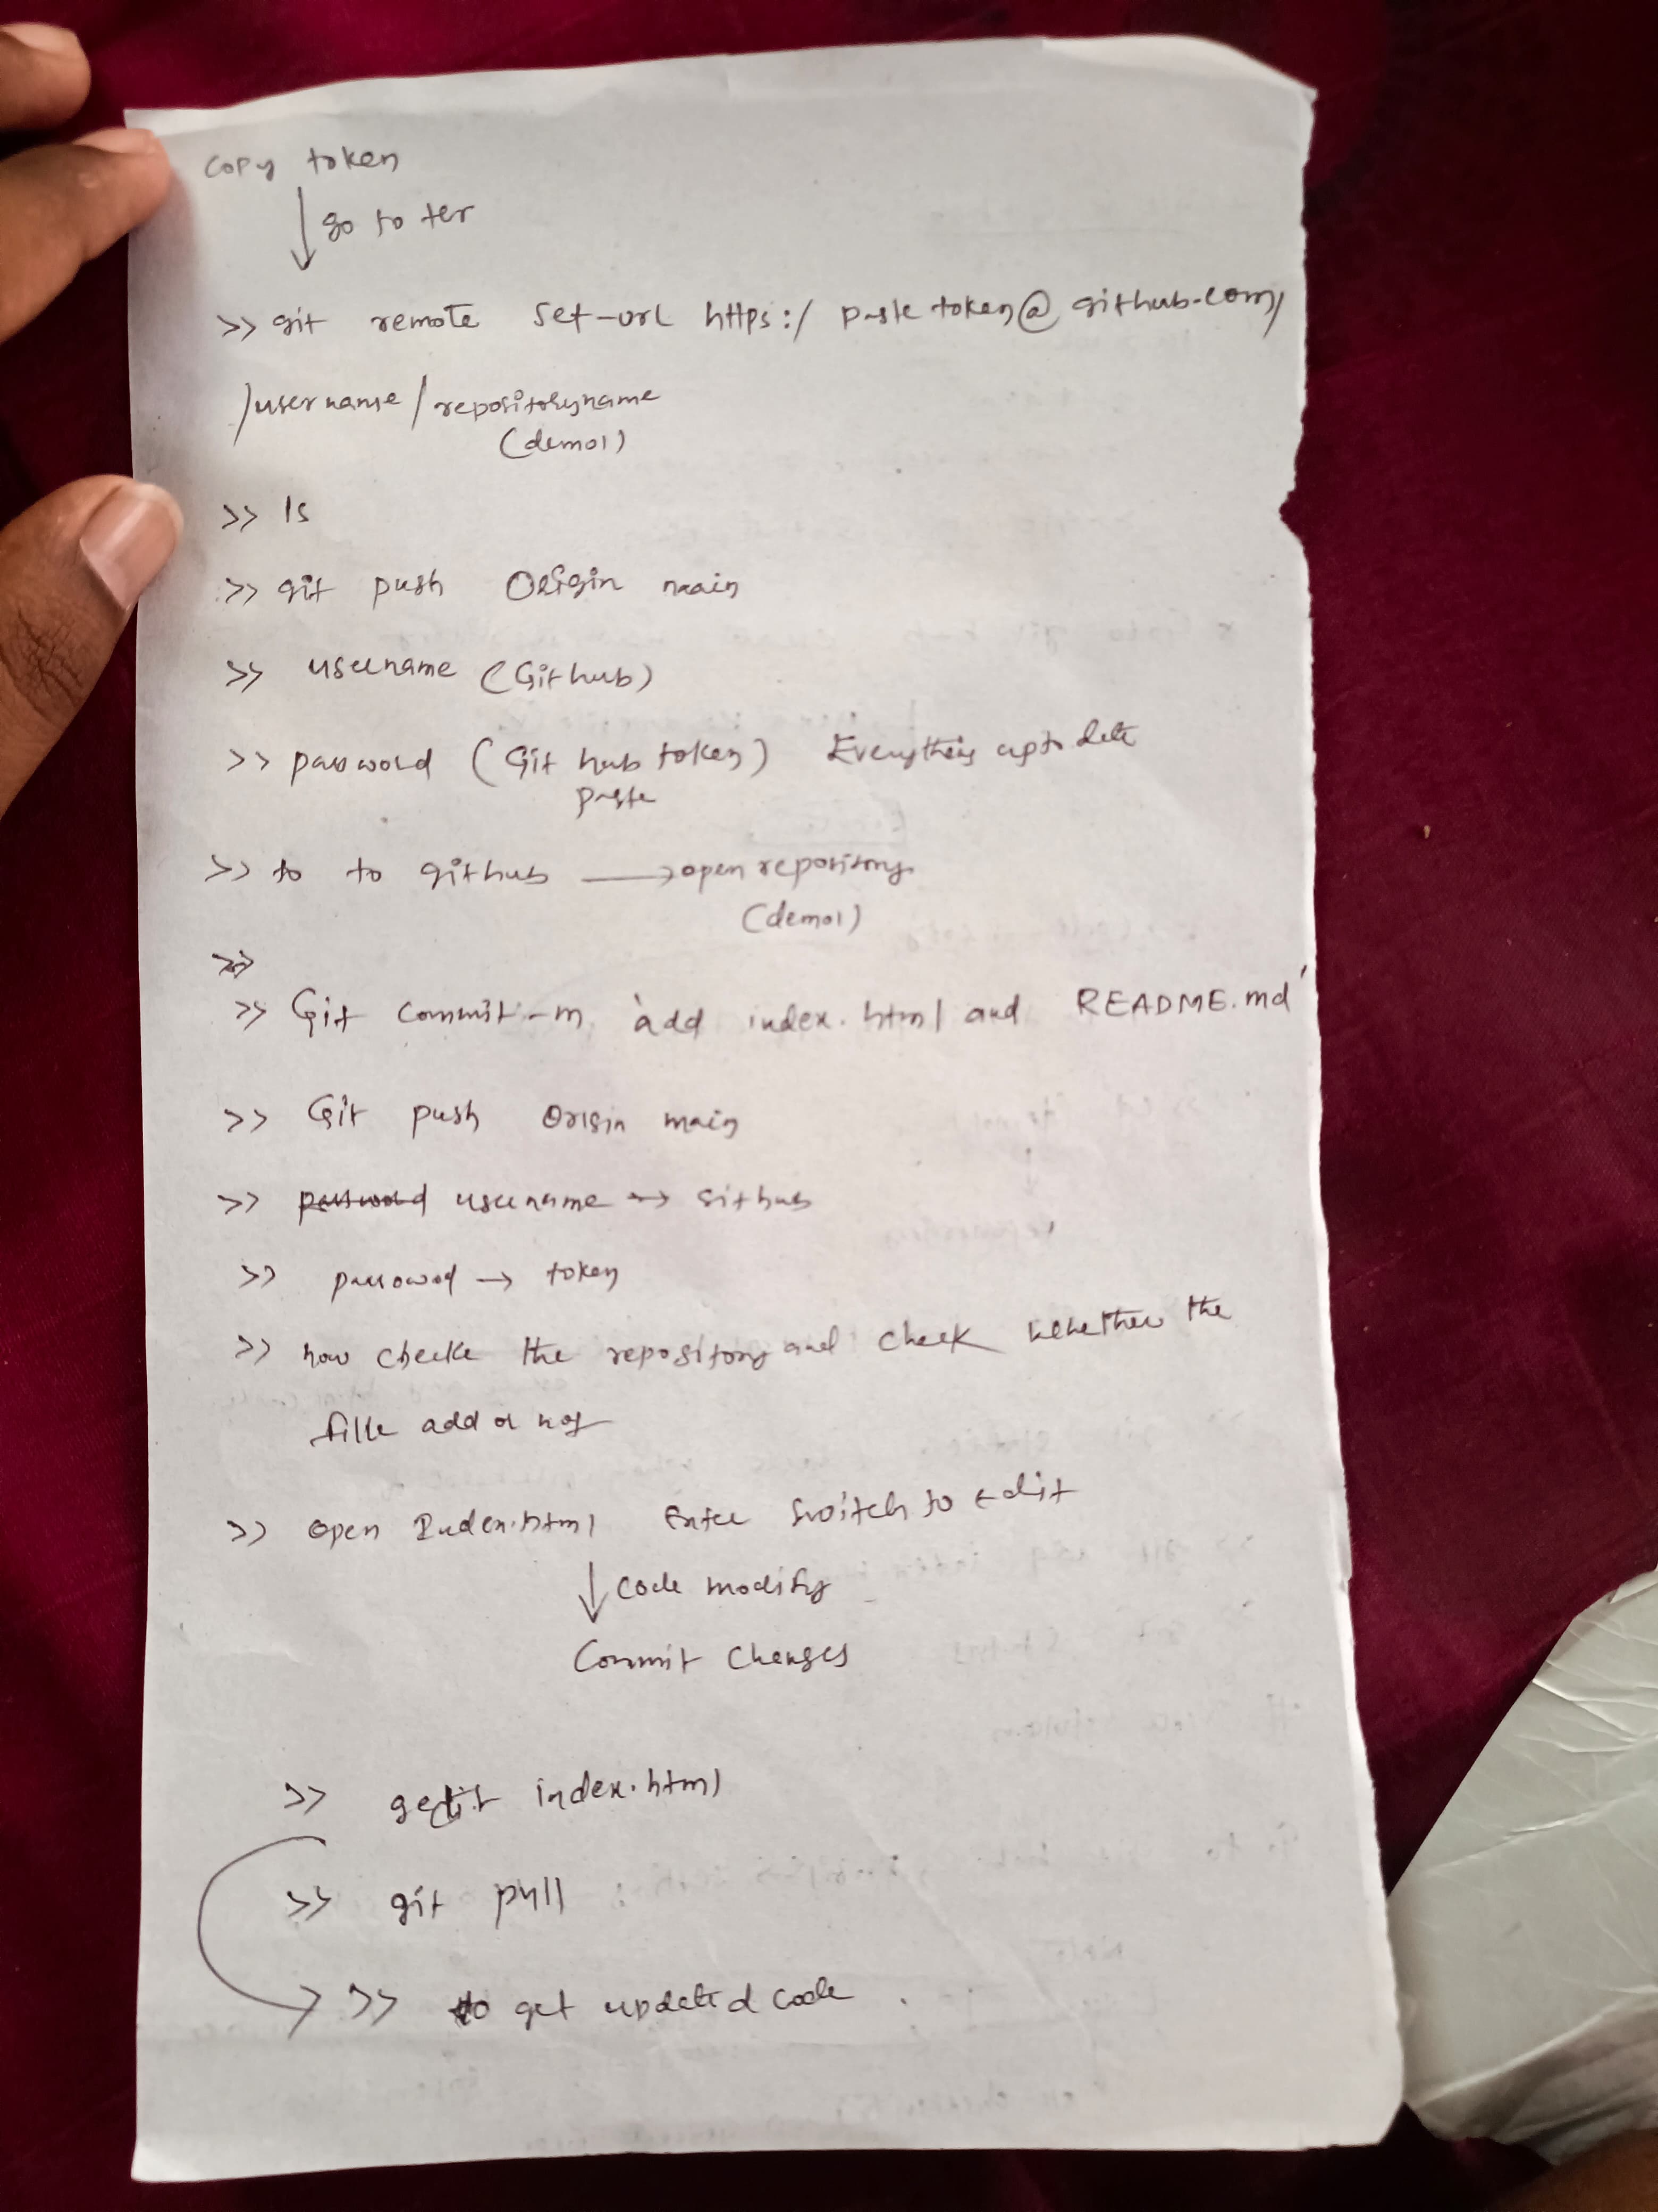 copy token
↓ go to ter
>> git remote set-url https:/ paste token@github.com/
/username/repositoryname
(demo1)
>> ls
>> git push Origin main
>> username (Github)
>> password (Git hub token) Everything upto date
paste
>> to to github → open repository
(demo1)
>>
>> Git commit -m 'add index.html and README.md'
>> Git push Origin main
>> password username → github
>> password → token
>> now checke the repository and check whether the
fille add or not
>> open Index.html Enter switch to edit
↓ code modify
Commit changes
>> gedit index.html
>> git pull
>> to get updated code.